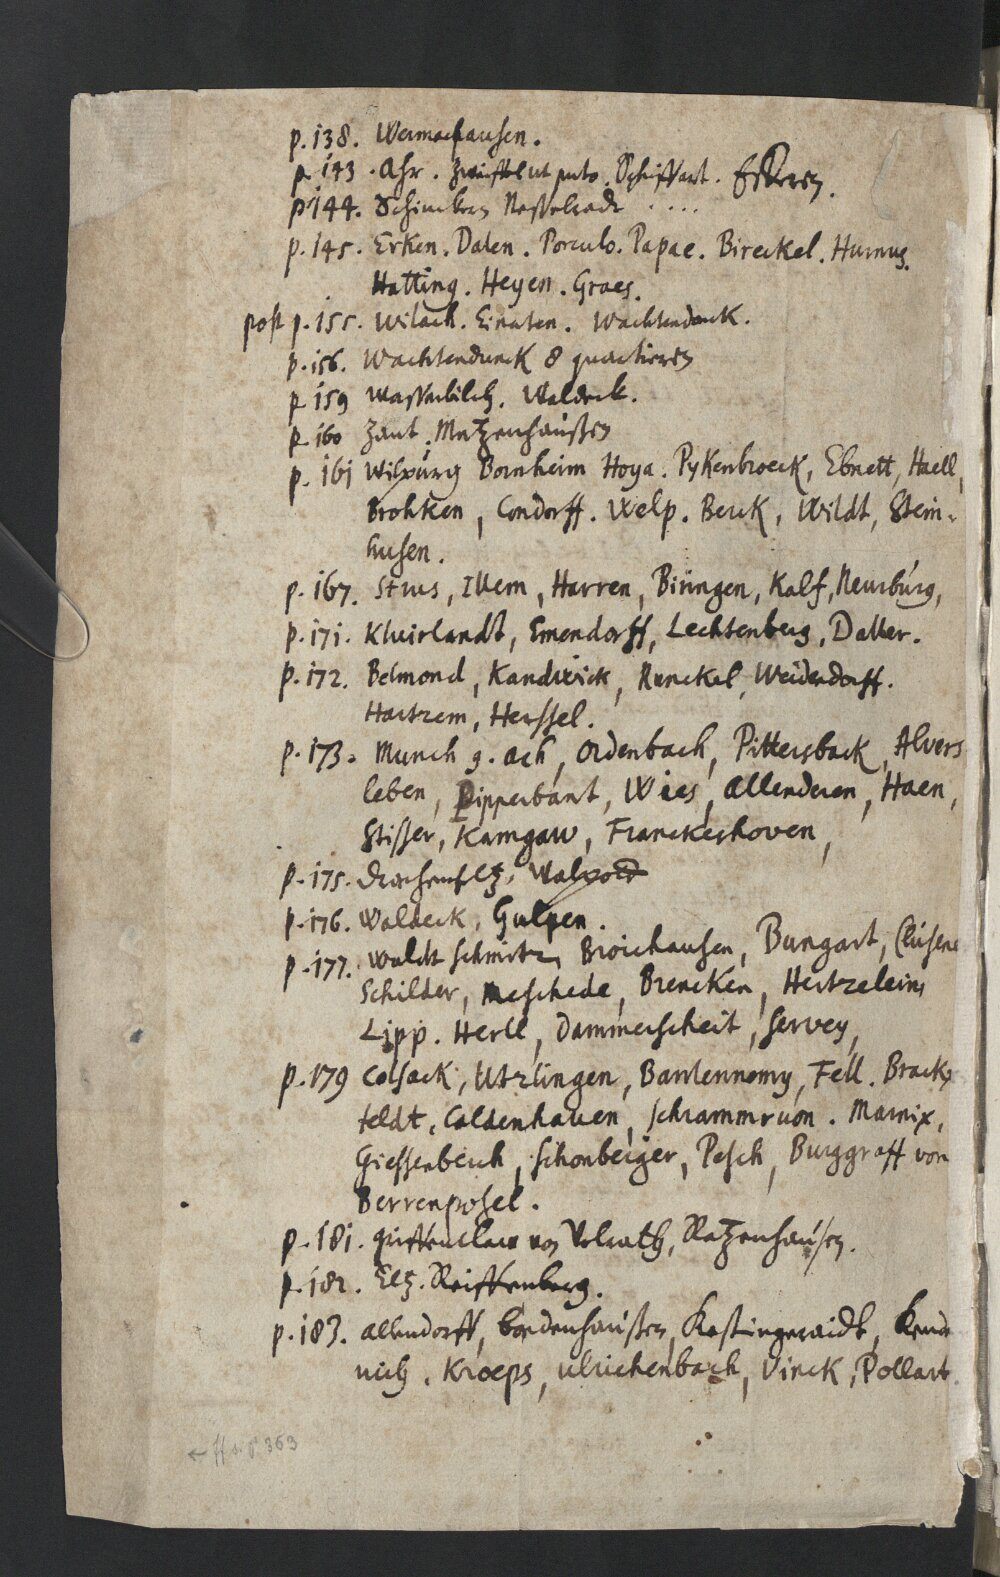 p. 138. Wermachausen.
p 143. Ahr. ut puto. Schiffart.
p 144. Schinckern Nesselradt ....
p. 145. Erken. Dalen. Porculo. Papae. Bireckel. Humus.
Hatting. Heyen. Graes.
post p. 155. Wilach. Einaten. Wachtendonck.
p. 156. Wachtendunck 8 quartieren
p 159 Wasserbilch. Waldeck.
p 160 Zant. Metzenhaußen
p. 161 Bornheim Hoya. Pykenbroeck, Ebnett, Haell,
Brohken, Condorff. Welp. Berck, Wildt, Stein-
husen.
p. 167. Strus, Illem, Harren, Biringen, Kalf, Neurburg,
p. 171. Kluirlandt, Emendorff, Lechtenberg, Dalber.
p. 172. Belmond, Kandwick, Runckel, Weidendorff.
Hartzem, Herssel.
p. 173. Munch g. ach, Oldenbach, Pittersback, Alvers
leben, Pipperbant, Wies, Allenderen, Haen,
Stisser, Kamgaw, Franckeshoven,
p. 175. Drachenfeltz, Walpott
p. 176. Waldeck, Gulpen.
p. 177. Waldt schmitz, Broichausen, Bungart, Clusene
Schilder, Meschede, Brencken, Hertzeleins
Lipp. Herll, Dammerscheit, Servey,
p. 179 Colsack, Utzlingen, Bawlennomy, Fell. Brack,
feldt, Caldenhauen, schrammruon. Marnix,
Giessenbeich, schonbeiger, Pesch, Burggraff von
Berrenposel.
p. 181. Greiffenclaw von Volrath, Ratzenhausen.
p. 182. Eltz. Reiffenberg.
p. 183. Allendorff, Boedenhaußen, Kestingeraidt, Kend
nich, Kroeps, ulrichenbach, Vinck, Pollart.
363